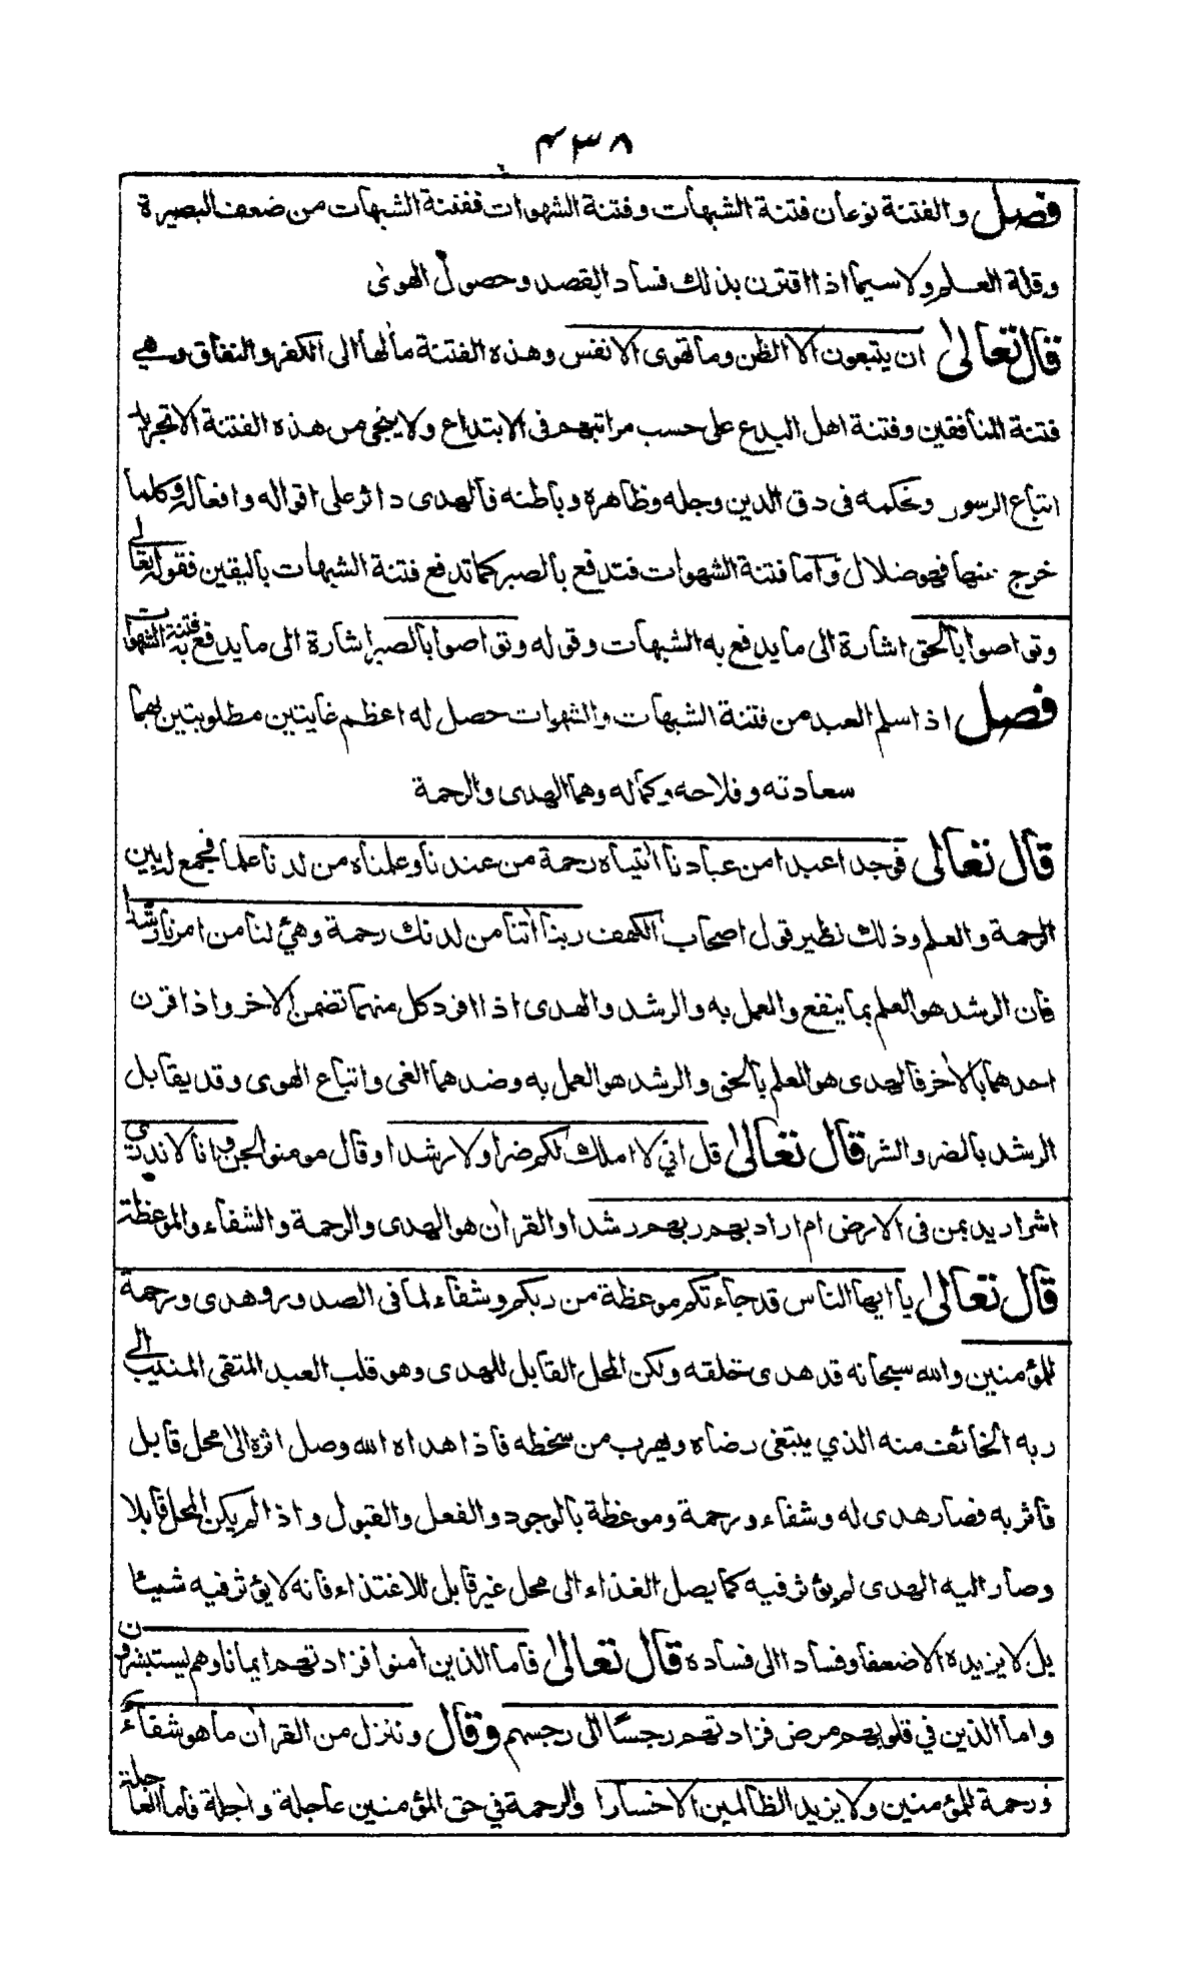 ۴۳۸
فصل والفتنة نوعان فتنة الشبهات وفتنة الشهوات ففتنة الشبهات من ضعف البصيرة
وقلة العلم ولا سيما اذا اقترن بذلك فساد القصد وحصول الهوى
قال تعالى ان يتبعون الا الظن وما تهوى الانفس وهذه الفتنة مآلها الى الكفر والنفاق وهي
فتنة المنافقين وفتنة اهل البدع على حسب مراتبهم في الابتداع ولا ينجي من هذه الفتنة الا تجريد
اتباع الرسور وتحكمه فى دق الدين وجله وظاهره وباطنه فالهدى دائر على اقواله وافعاله وكلما
خرج عنها فهو ضلال وآما فتنة الشهوات فتدفع بالصبر كما تدفع فتنة الشبهات باليقين فقوله تعالى
وتواصوا بالحق اشارة الى ما يدفع به الشبهات وقوله وتواصوا بالصبر اشارة الى ما يدفع به فتنة الشهوات
فصل اذا سلم العبد من فتنة الشبهات والشهوات حصل له اعظم غايتين مطلوبتين بهما
سعادته وفلاحه وكماله وهما الهدى والرحمة
قال تعالى فوجدا عبدا من عبادنا اتيناه رحمة من عندنا وعلمناه من لدنا علما فجمع له بين
الرحمة والعلم وذلك نظير قول اصحاب الكهف ربنا اتنا من لدنك رحمة وهيئ لنا من امرنا رشدا
فان الرشد هو العلم بما ينفع والعمل به والرشد والهدى اذا افرد كل منهما تضمن الاخر واذا قرن
احدهما بالآخر فالهدى هو العلم بالحق والرشد هو العمل به وضدهما الغى واتباع الهوى وقد يقابل
الرشد بالضر والشر قال تعالى قل اني لا املك لكم ضرا ولا رشدا وقال مومنو الجن وانا لا ندري
اشر اريد بمن فى الارض ام اراد بهم ربهم رشدا والقران هو الهدى والرحمة والشفاء والموعظة
قال تعالى يا ايها الناس قد جاءتكم موعظة من ربكم وشفاء لما فى الصدور وهدى ورحمة
للمؤمنين والله سبحانه قد هدى خلقه ولكن المحل القابل للهدى وهو قلب العبد المتقى المنيب الى
ربه الخائف منه الذي يبتغى رضاه ويهرب من سخطه فاذا هداه الله وصل اثره الى محل قابل
فاثر به فصار هدى له وشفاء ورحمة وموعظة بالوجود والفعل والقبول واذا لم يكن المحل قابلا
وصار اليه الهدى لم يؤثر فيه كما يصل الغذاء الى محل غير قابل للاغتذاء فانه لا يؤثر فيه شيئا
بل لا يزيده الا ضعفا وفسادا الى فساده قال تعالى فاما الذين آمنوا فزادتهم ايمانا وهم يستبشرون
واما الذين في قلوبهم مرض فزادتهم رجسًا الى رجسهم وقال وننزل من القرآن ما هو شفاءٌ
ورحمة للمؤمنين ولا يزيد الظالمين الا خسارا والرحمة في حق المؤمنين عاجلة واجلة فاما العاجلة